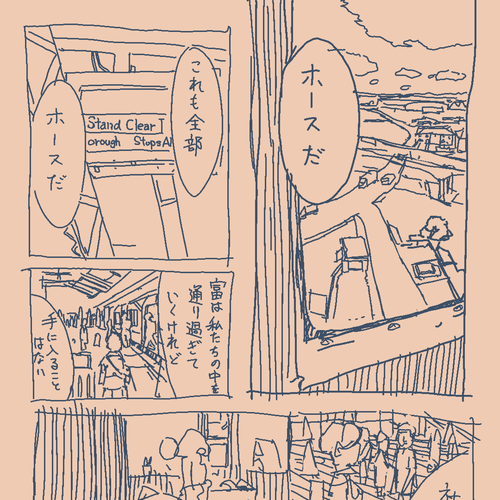 ホースだ
これも全部
Stand Clear T
orough StopsAl
ホースだ
富は私たちの中を
通り過ぎて
いくけれど
手に入ること
はない